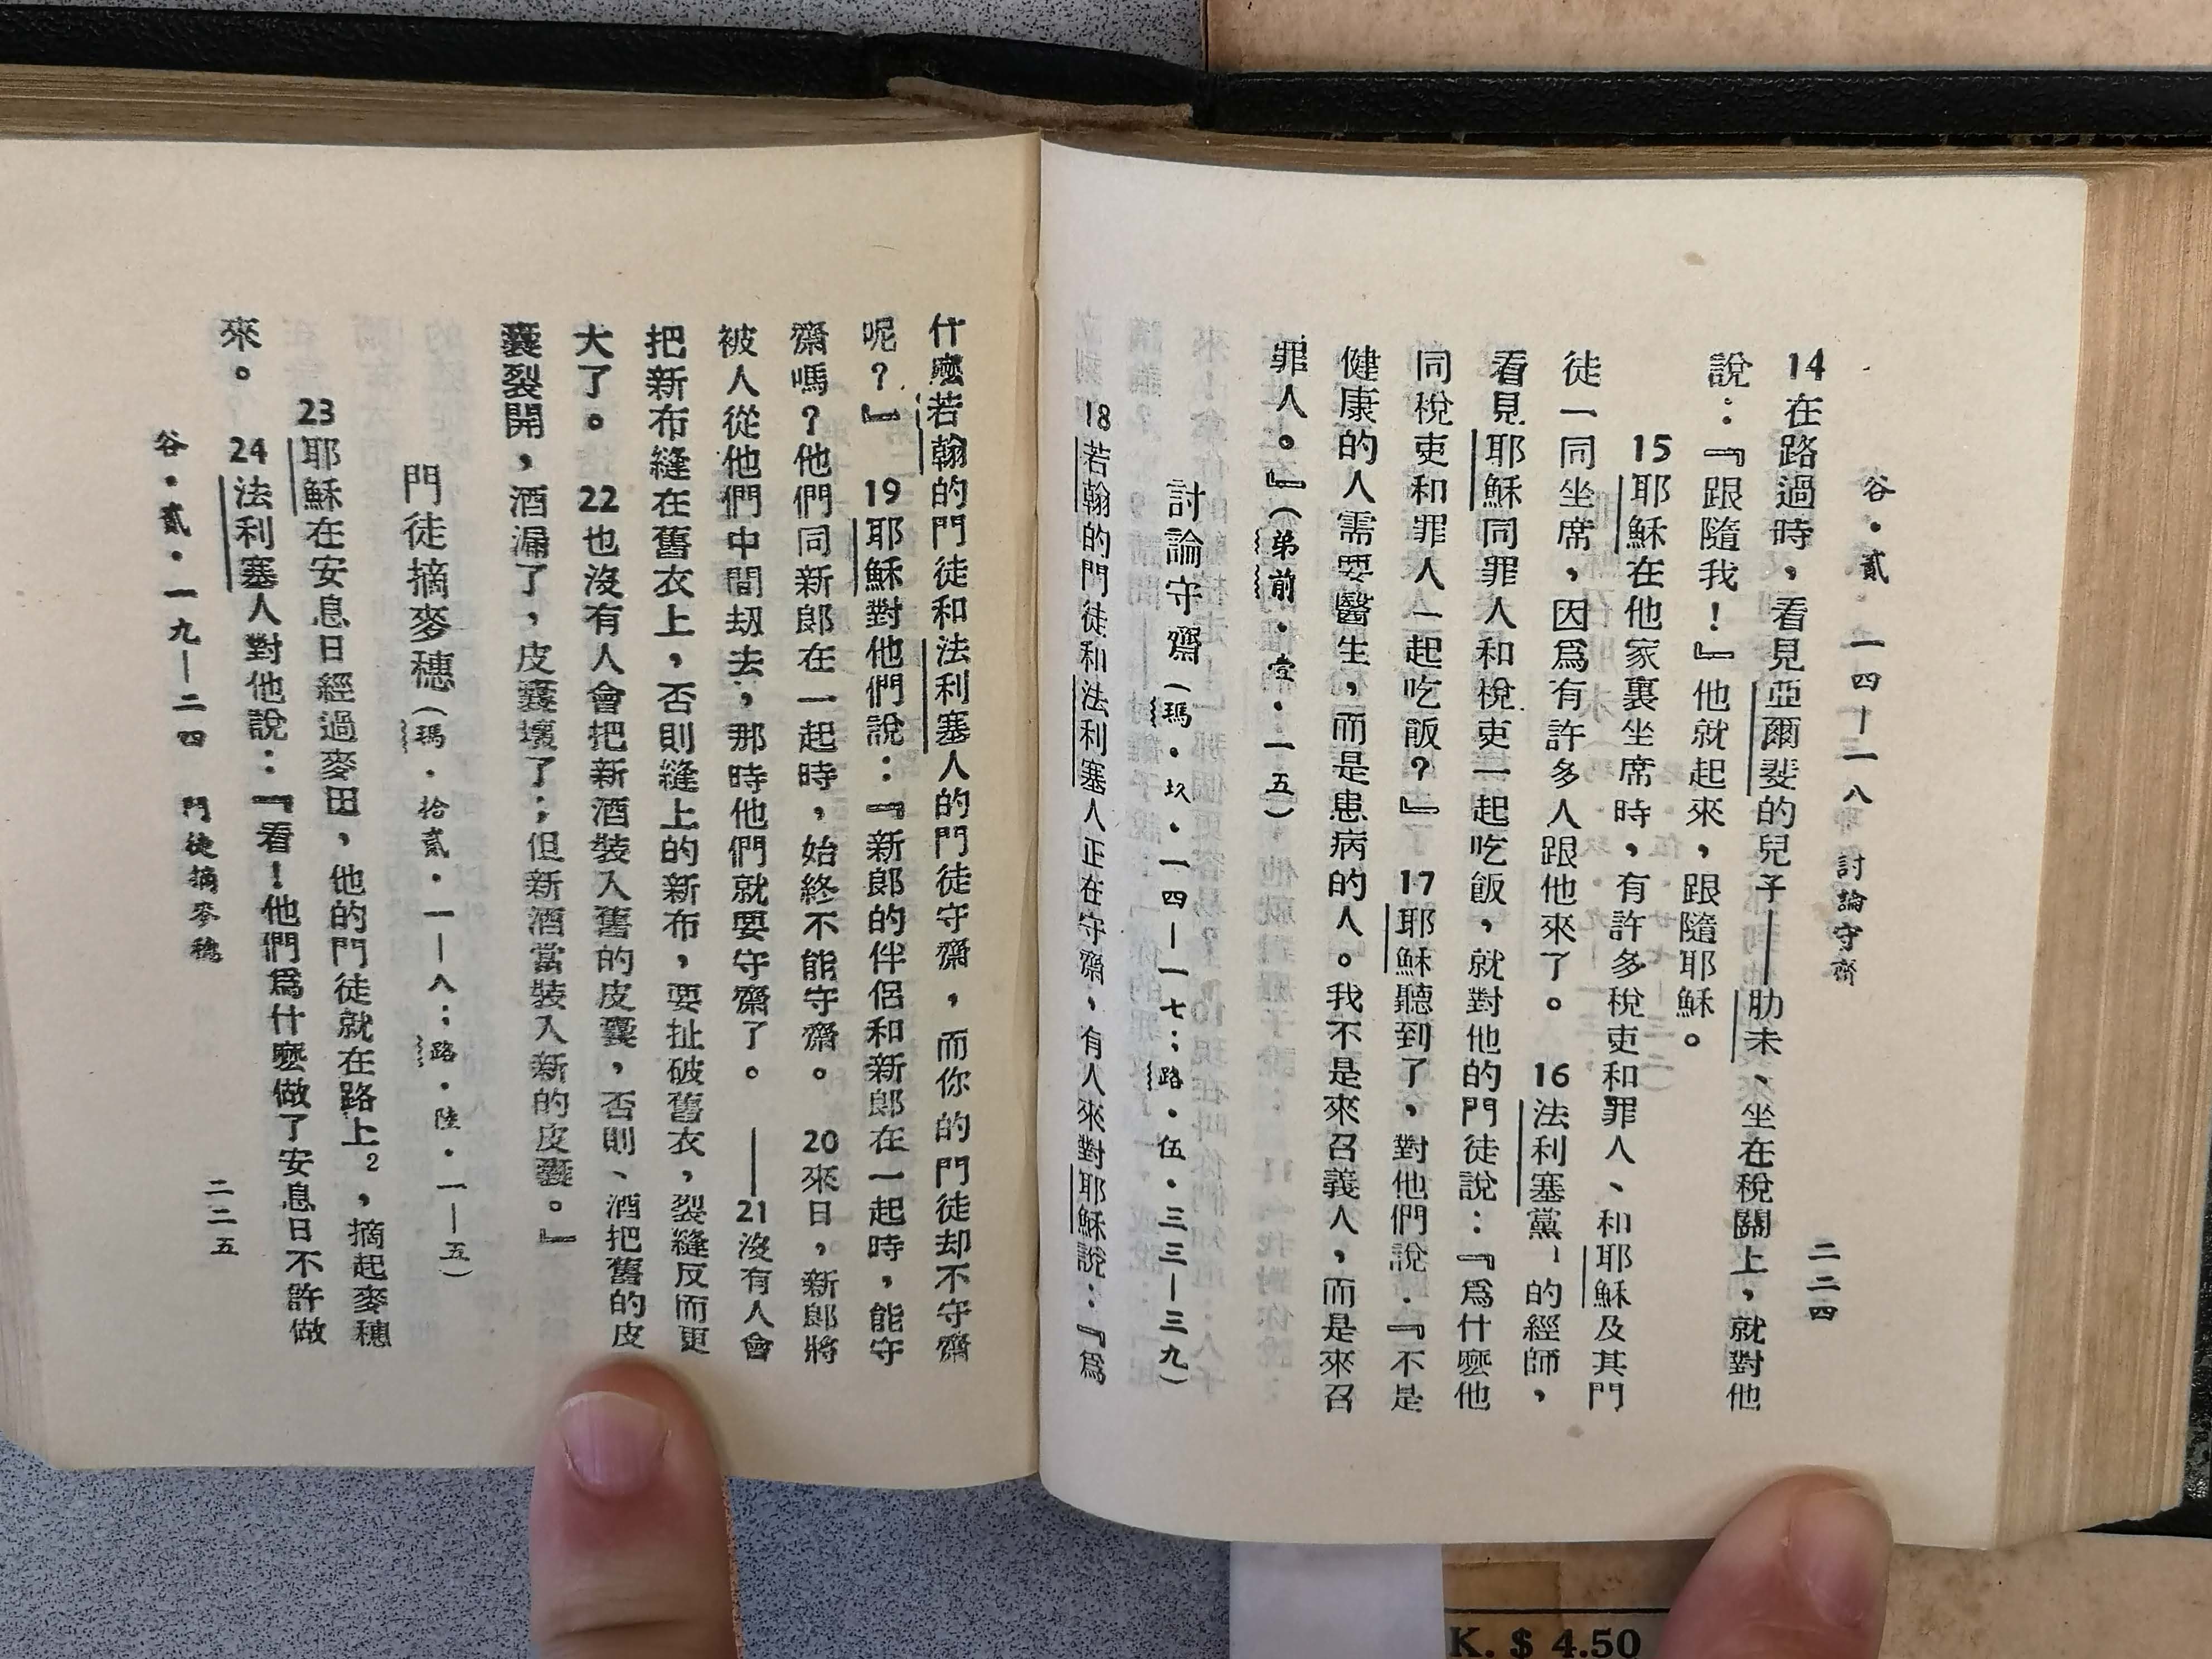 谷・貳・一四—二八 討論守齋 二二四
14在路過時，看見亞爾斐的兒子——肋未、坐在稅關上，就對他
說：『跟隨我！』他就起來，跟隨耶穌。
15耶穌在他家裏坐席時，有許多稅吏和罪人、和耶穌及其門
徒一同坐席，因爲有許多人跟他來了。 16法利塞黨¹的經師，
看見耶穌同罪人和稅吏一起吃飯，就對他的門徒說：『爲什麼他
同稅吏和罪人一起吃飯？』 17耶穌聽到了，對他們說：『不是
健康的人需要醫生，而是患病的人。我不是來召義人，而是來召
罪人。』（弟前・壹・一五）
討論守齋（瑪・玖・一四—一七；路・伍・三三—三九）
18若翰的門徒和法利塞人正在守齋，有人來對耶穌說：『爲
什麼若翰的門徒和法利塞人的門徒守齋，而你的門徒却不守齋
呢？』 19耶穌對他們說：『新郎的伴侶和新郎在一起時，能守
齋嗎？他們同新郎在一起時，始終不能守齋。 20來日，新郎將
被人從他們中間刼去，那時他們就要守齋了。——21沒有人會
把新布縫在舊衣上，否則縫上的新布，要扯破舊衣，裂縫反而更
大了。 22也沒有人會把新酒裝入舊的皮囊，否則、酒把舊的皮
囊裂開，酒漏了，皮囊壞了；但新酒當裝入新的皮囊。』
門徒摘麥穗（瑪・拾貳・一—八；路・陸・一—五）
23耶穌在安息日經過麥田，他的門徒就在路上²，摘起麥穗
來。 24法利塞人對他說：『看！他們爲什麼做了安息日不許做
谷・貳・一九—二四 門徒摘麥穗 二二五
K. $ 4.50